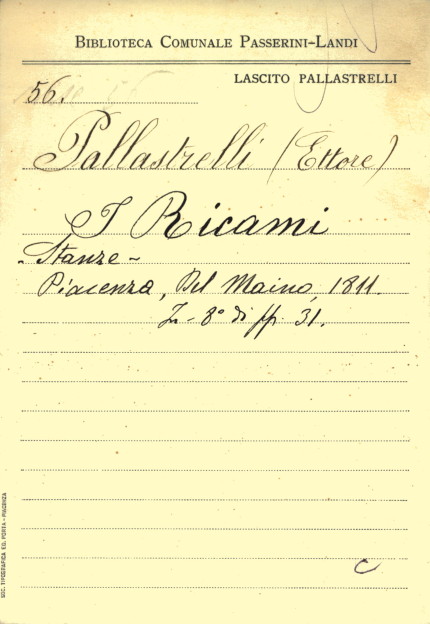 BIBLIOTECA COMUNALE PASSERINI-LANDI
LASCITO PALLASTRELLI
56.
Pallastrelli (Ettore)
I Ricami
- Stanze -
Piacenza, Del Maino, 1811.
In-8° di pp. 31.
C
SOC. TIPOGRAFICA ED. PORTA - PIACENZA